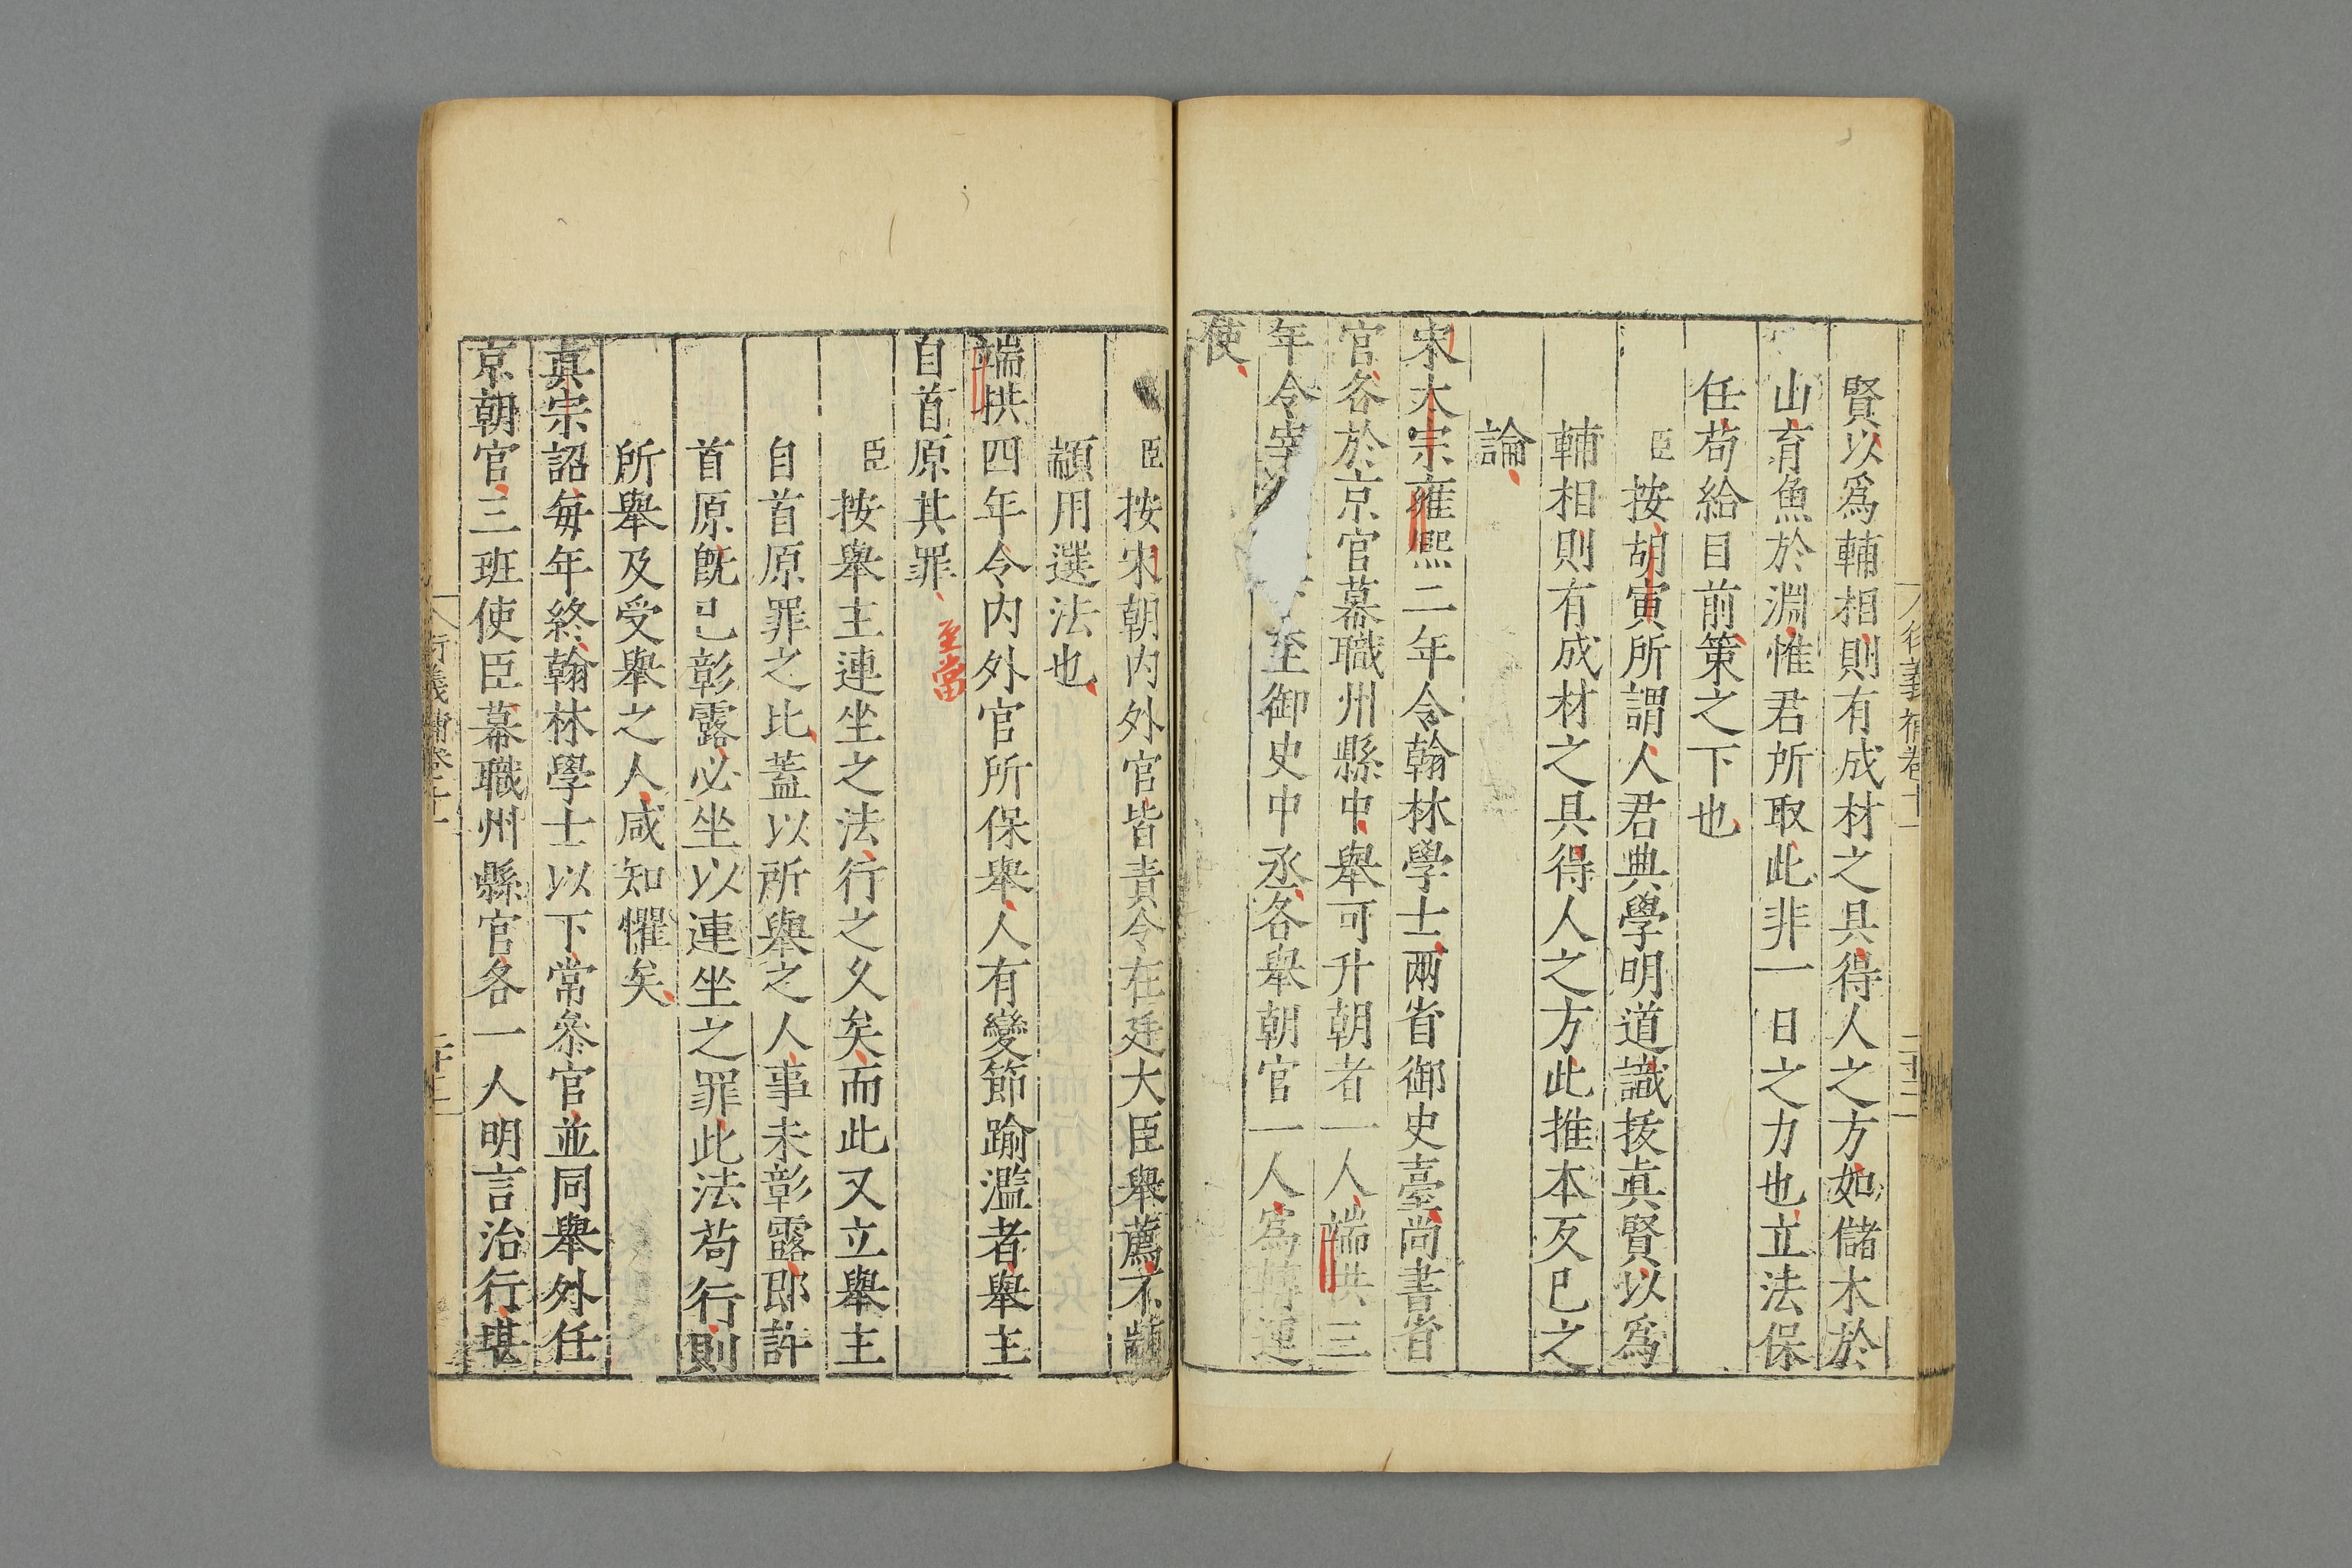 賢以爲輔相則有成材之具得人之方如儲木於
山育魚於淵惟君所取此非一日之力也立法保
任苟給目前策之下也
臣按胡寅所謂人君典學明道識拔眞賢以爲
輔相則有成材之具得人之方此推本反已之
論
宋太宗雍熙二年令翰林學士兩省御史臺尚書省
官各於京官幕職州縣中舉可升朝者一人端拱三
年令宰至御史中丞各舉朝官一人爲轉運
使
臣按宋朝内外官皆責令在廷大臣舉薦不顓
顓用選法也
端拱四年令内外官所保舉人有變節踰濫者舉主
自首原其罪
至當
臣按舉主連坐之法行之久矣而此又立舉主
自首原罪之比蓋以所舉之人事未彰露郎許
首原旣已彰露必坐以連坐之罪此法苟行則
所舉及受舉之人咸知懼矣
真宗詔每年終翰林學士以下常叅官並同舉外任
京朝官三班使臣幕職州縣官各一人明言治行堪